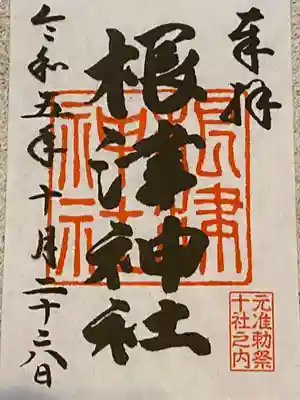 奉拝
根津神社
根津
神社
元准勅祭
十社之内
令和五年十月二十六日